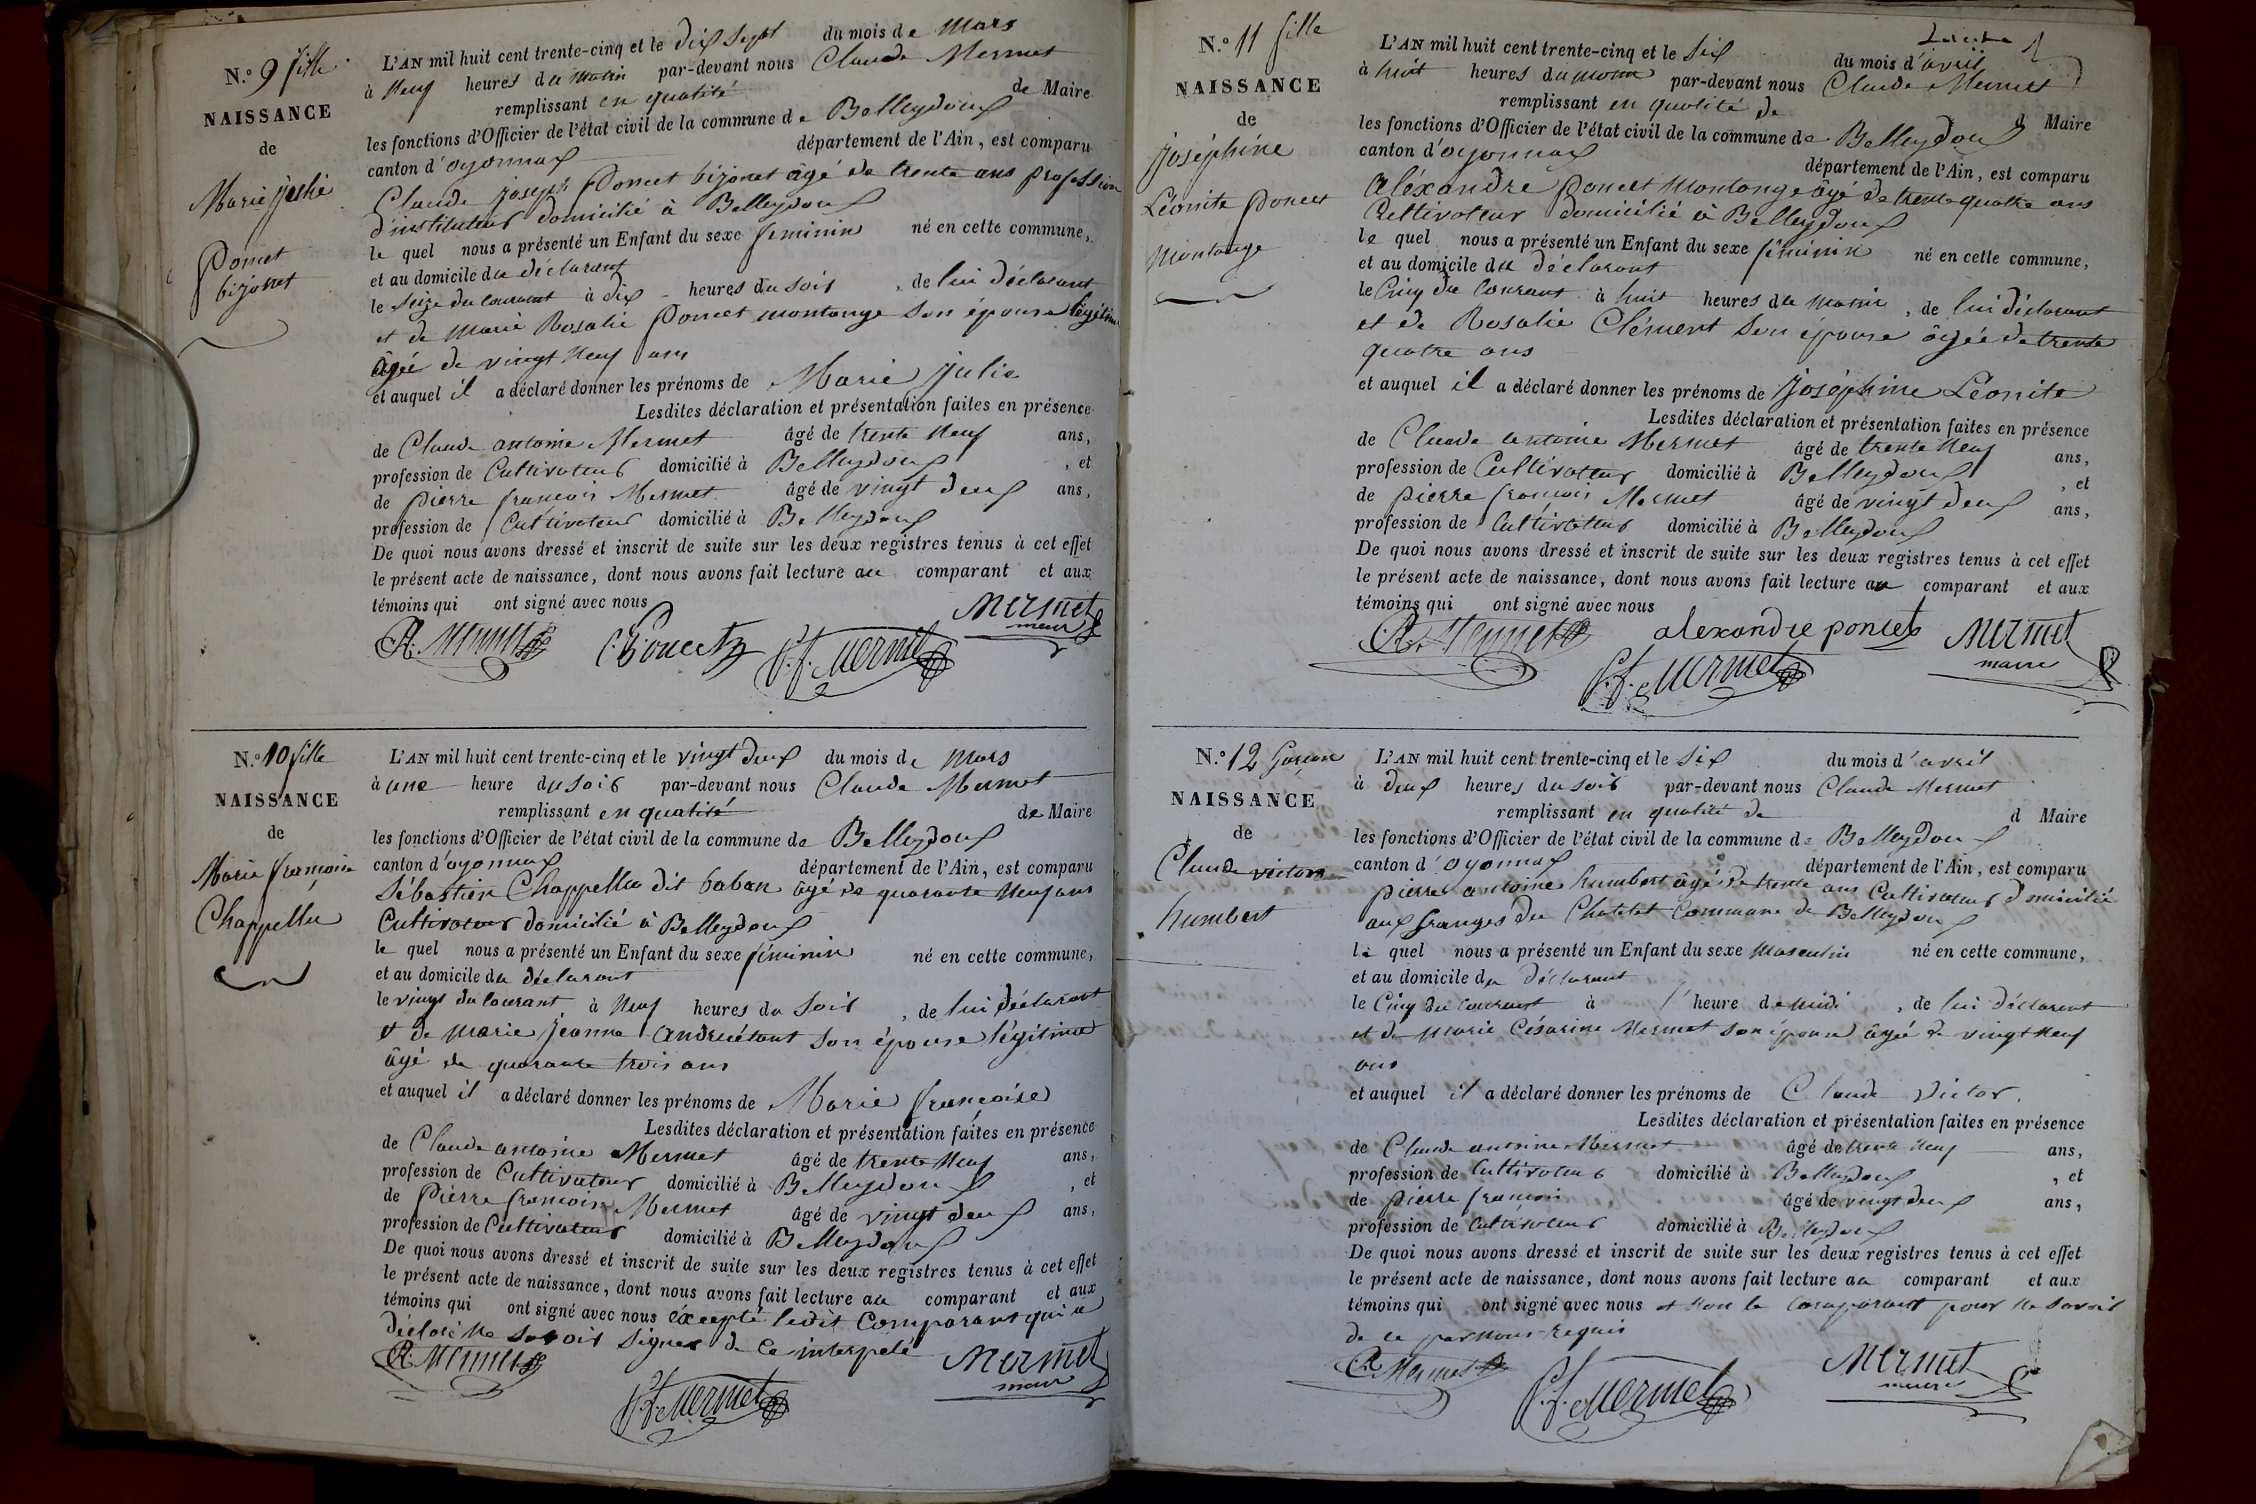 N.º 9 fille
NAISSANCE
de
Marie julie
Poncet
bijonet
L'AN mil huit cent trente-cinq et le dix Sept du mois de Mars
à Neuf heures du matin par-devant nous Claude Mermet
remplissant en qualité de Maire
les fonctions d'Officier de l'état civil de la commune de Belleydoux
canton d'oyonnax département de l'Ain, est comparu
Claude joseph Poncet bijonet âgé de trente ans profession
d'instituteur domicilié à Belleydoux
le quel nous a présenté un Enfant du sexe feminin né en cette commune,
et au domicile du déclarant
le seize du courant à dix heures du soir, de lui déclarant
et de Marie Rosalie Poncet montange son épouse légitime
âgée de vingt Neuf ans
et auquel il a déclaré donner les prénoms de Marie julie
Lesdites déclaration et présentation faites en présence
de Claude antoine Mermet âgé de trente Neuf ans,
profession de Cultivateur domicilié à Belleydoux, et
de pierre françois Mermet âgé de vingt deux ans,
profession de Cultivateur domicilié à Belleydoux
De quoi nous avons dressé et inscrit de suite sur les deux registres tenus à cet effet
le présent acte de naissance, dont nous avons fait lecture au comparant et aux
témoins qui ont signé avec nous
Mermet
maire
C.A. Mermet C. Poncet P.F. Mermet
N.º 10 fille
NAISSANCE
de
Marie françoise
Chappellu
L'AN mil huit cent trente-cinq et le vingt deux du mois de Mars
à une heure du soir par-devant nous Claude Mermet
remplissant en qualité de Maire
les fonctions d'Officier de l'état civil de la commune de Belleydoux
canton d'oyonnax département de l'Ain, est comparu
Sébastien Chappellu dit baban âgé de quarante Neuf ans
Cultivateur domicilié à Belleydoux
le quel nous a présenté un Enfant du sexe féminin né en cette commune,
et au domicile du déclarant
le vingt du courant à Neuf heures du soir, de lui déclarant
et de marie jeanne andruétant son épouse légitime
âgé de quarante trois ans
et auquel il a déclaré donner les prénoms de Marie françoise
Lesdites déclaration et présentation faites en présence
de Claude antoine Mermet âgé de trente Neuf ans,
profession de Cultivateur domicilié à Belleydoux, et
de Pierre françois Mermet âgé de vingt deux ans,
profession de Cultivateur domicilié à Belleydoux
De quoi nous avons dressé et inscrit de suite sur les deux registres tenus à cet effet
le présent acte de naissance, dont nous avons fait lecture au comparant et aux
témoins qui ont signé avec nous excepté ledit Comparant qui a
déclaré ne savoir signer de ce interpelé
C.A. Mermet Mermet
maire
P.F. Mermet
N.º 11 fille
NAISSANCE
de
joséphine
Léonite Poncet
Montange
L'AN mil huit cent trente-cinq et le Six du mois d'avril
à huit heures du matin par-devant nous Claude Mermet
remplissant en qualité de d Maire
les fonctions d'Officier de l'état civil de la commune de Belleydoux
canton d'oyonnax département de l'Ain, est comparu
aléxandre poncet Montange âgé de trente quatre ans
Cultivateur domicilié à Belleydoux
le quel nous a présenté un Enfant du sexe féminin né en cette commune,
et au domicile du déclarant
le Cinq du Courant à huit heures du matin, de lui déclarant
et de Rosalie Clément son épouse âgée de trente
quatre ans
et auquel il a déclaré donner les prénoms de joséphine Léonite
Lesdites déclaration et présentation faites en présence
de Claude antoine Mermet âgé de trente Neuf ans,
profession de Cultivateur domicilié à Belleydoux, et
de pierre françois Mermet âgé de vingt deux ans,
profession de Cultivateur domicilié à Belleydoux
De quoi nous avons dressé et inscrit de suite sur les deux registres tenus à cet effet
le présent acte de naissance, dont nous avons fait lecture au comparant et aux
témoins qui ont signé avec nous
C.A. Mermet alexandre poncet Mermet
maire
P.F. Mermet
N.º 12 Garçon
NAISSANCE
de
Claude victor
humbert
L'AN mil huit cent trente-cinq et le six du mois d'avril
à deux heures du soir par-devant nous Claude Mermet
remplissant en qualité de d Maire
les fonctions d'Officier de l'état civil de la commune de Belleydoux
canton d'oyonnax département de l'Ain, est comparu
pierre antoine humbert âgé de trente ans Cultivateur domicilié
aux granges du Chatelet Commune de Belleydoux
le quel nous a présenté un Enfant du sexe Masculin né en cette commune,
et au domicile du déclarant
le Cinq du courant à l'heure de midi, de lui déclarant
et de Marie Césarine Mermet son épouse âgée de vingt Neuf
ans
et auquel il a déclaré donner les prénoms de Claude victor.
Lesdites déclaration et présentation faites en présence
de Claude antoine Mermet âgé de trente Neuf ans,
profession de Cultivateur domicilié à Belleydoux, et
de pierre françois âgé de vingt deux ans,
profession de Cultivateur domicilié à Belleydoux
De quoi nous avons dressé et inscrit de suite sur les deux registres tenus à cet effet
le présent acte de naissance, dont nous avons fait lecture au comparant et aux
témoins qui ont signé avec nous et non le Comparant pour ne savoir
de ce par nous requis
C.A. Mermet P.F. Mermet Mermet
maire